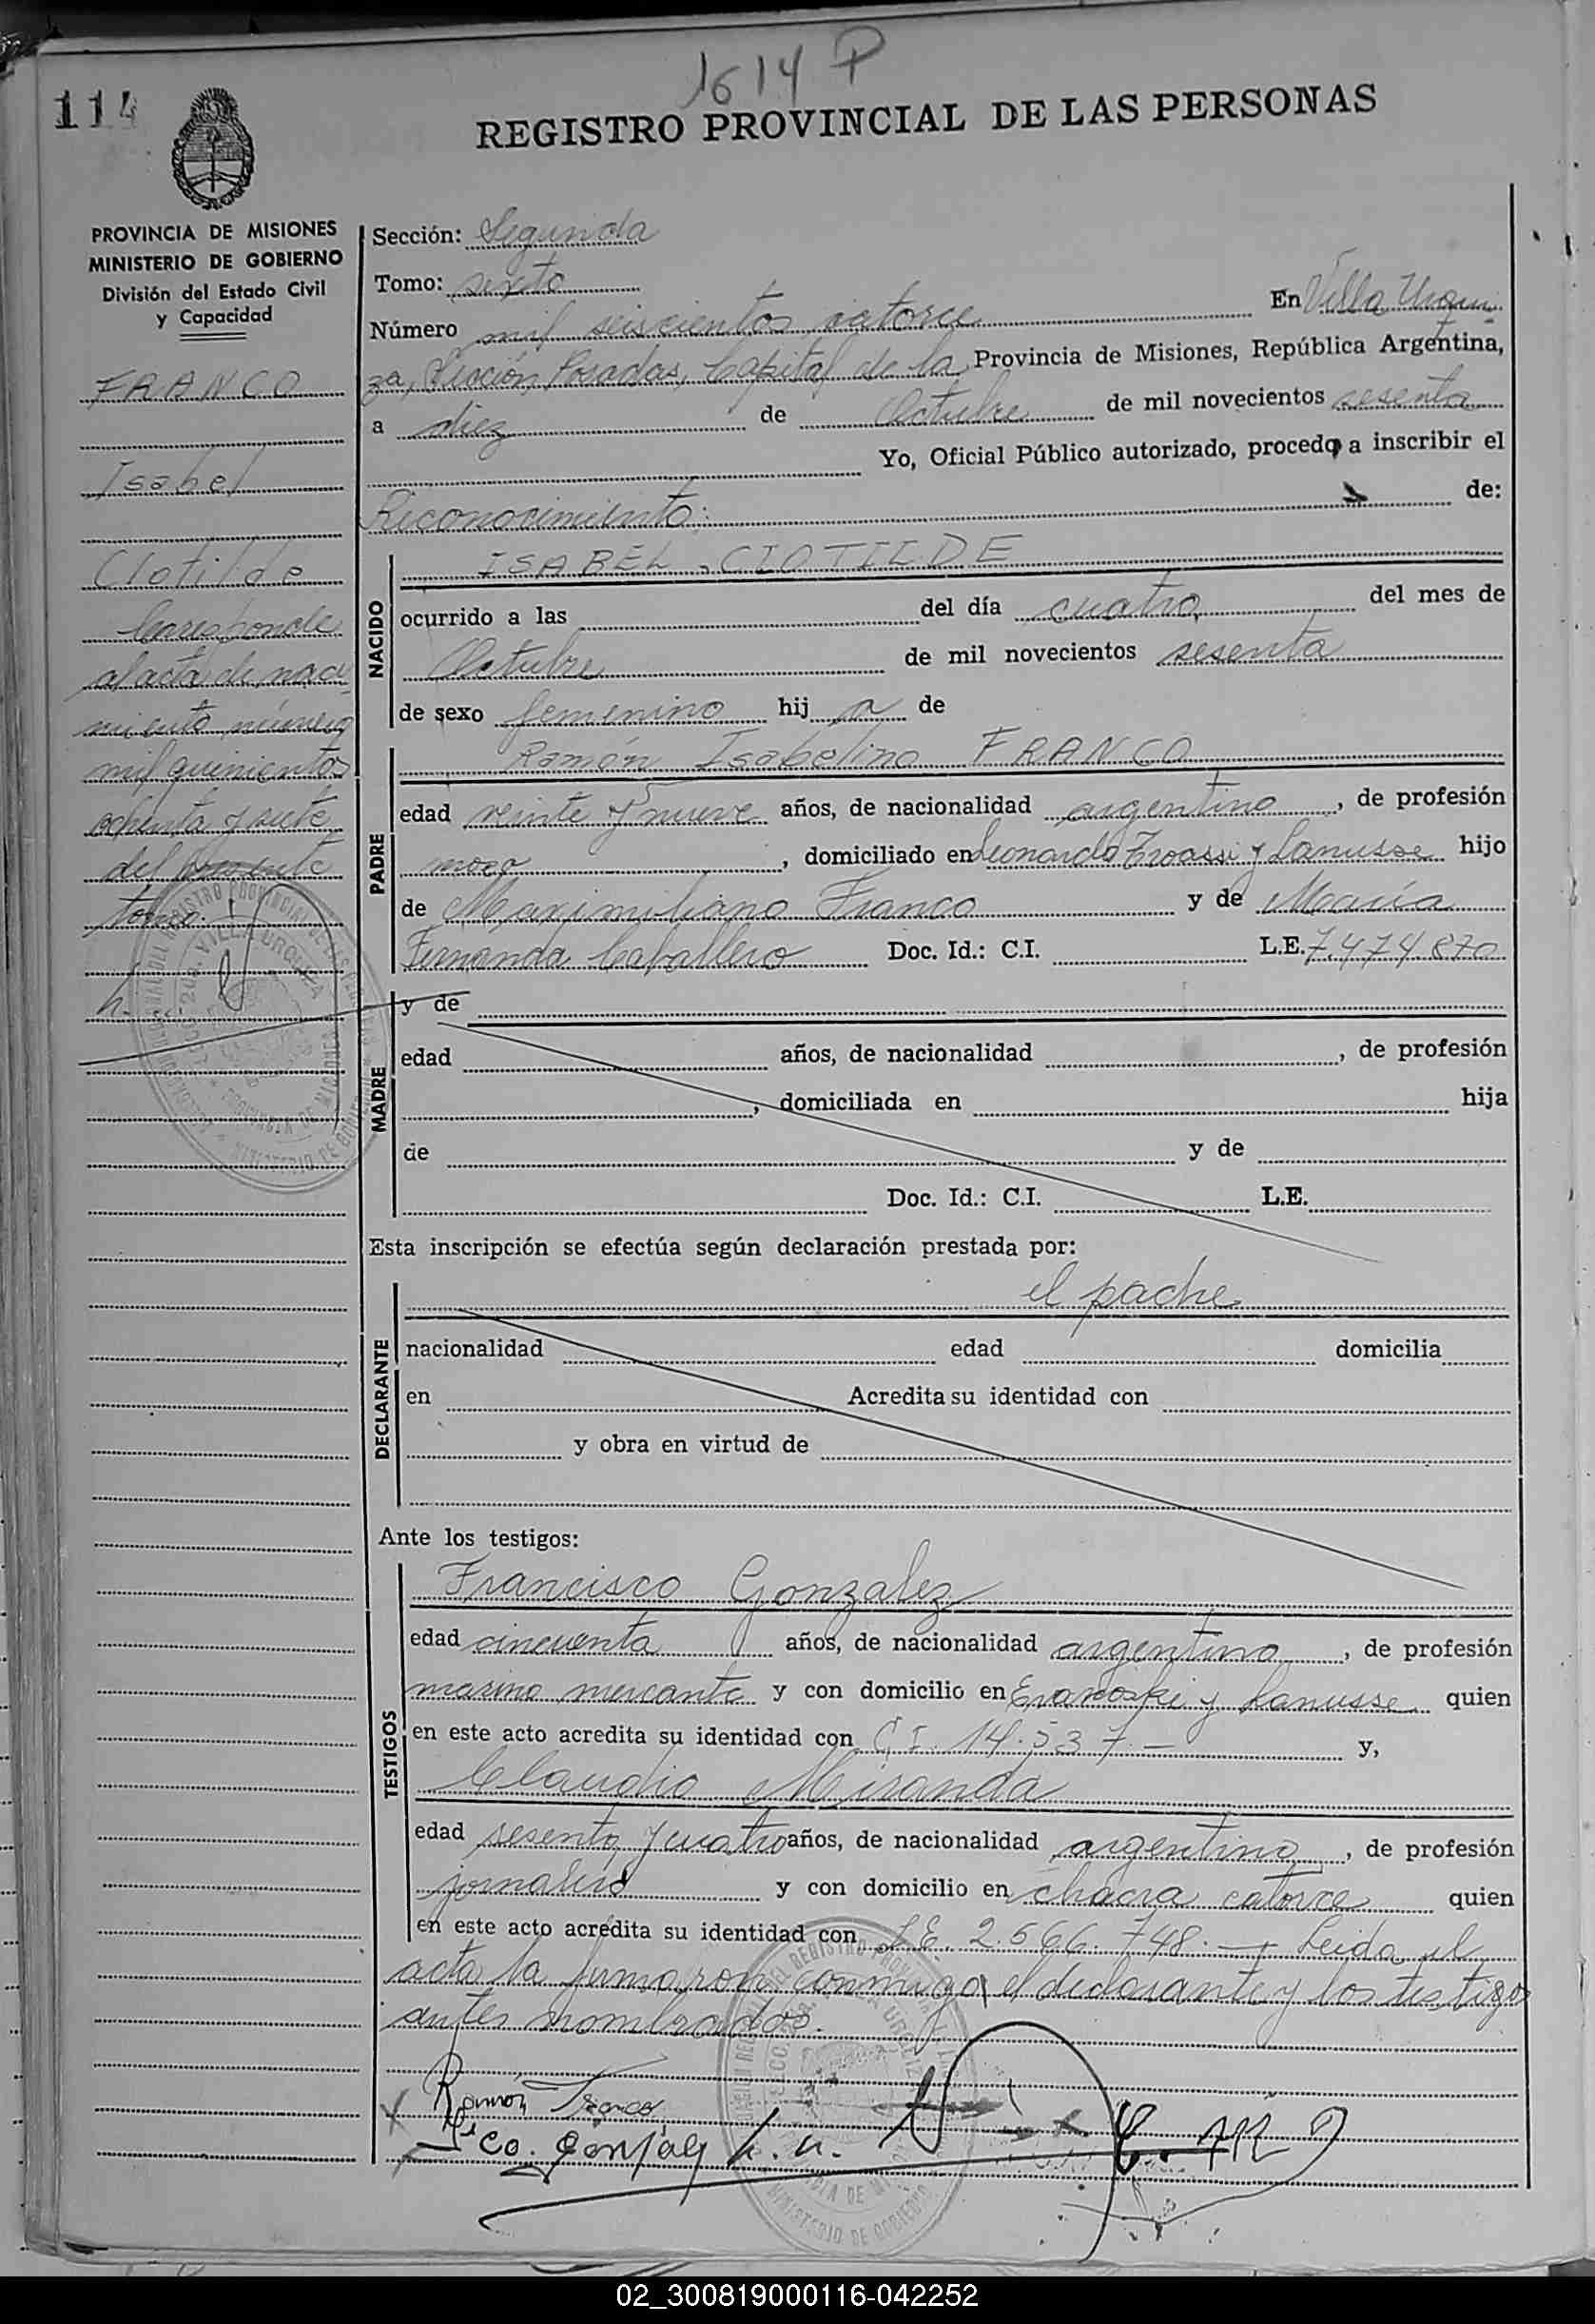 1614 P
114
REGISTRO PROVINCIAL DE LAS PERSONAS
PROVINCIA DE MISIONES
MINISTERIO DE GOBIERNO
División del Estado Civil
y Capacidad
FRANCO
Isabel
Clotilde
Corresponde
al acta de naci
miento número
mil quinientos
ochenta y siete
del presente
tomo.
Sección: Segunda
Tomo: sexto
Número mil seiscientos catorce En Villa Urqui
za, Sección Posadas, Capital de la Provincia de Misiones, República Argentina,
a diez de Octubre de mil novecientos sesenta
Yo, Oficial Público autorizado, procedo a inscribir el
Reconocimiento: de:
NACIDO
ISABEL CLOTILDE
ocurrido a las del día cuatro del mes de
Octubre de mil novecientos sesenta
de sexo femenino hij a de
PADRE
Ramón Isabelino FRANCO
edad veinte y nueve años, de nacionalidad argentino, de profesión
mozo, domiciliado en Leonardo y Lanusse hijo
de Maximiliano Franco y de María
Fernanda Caballero Doc. Id.: C.I. L.E. 7.474.870
MADRE
y de
edad años, de nacionalidad , de profesión
, domiciliada en hija
de y de
Doc. Id.: C.I. L.E.
Esta inscripción se efectúa según declaración prestada por:
DECLARANTE
el padre
nacionalidad edad domicilia
en Acredita su identidad con
y obra en virtud de
Ante los testigos:
TESTIGOS
Francisco Gonzalez
edad cincuenta años, de nacionalidad argentino, de profesión
marino mercante y con domicilio en y Lanusse quien
en este acto acredita su identidad con C.I. 14.537.— y,
Claudio Miranda
edad sesenta y cuatro años, de nacionalidad argentino, de profesión
jornalero y con domicilio en chacra catorce quien
en este acto acredita su identidad con L.E. 2.566.748.— Leida el
acta la firmaron conmigo el declarante y los testigos
antes nombrados.
Ramón Franco
Fco. Gonzalez
02_300819000116-042252